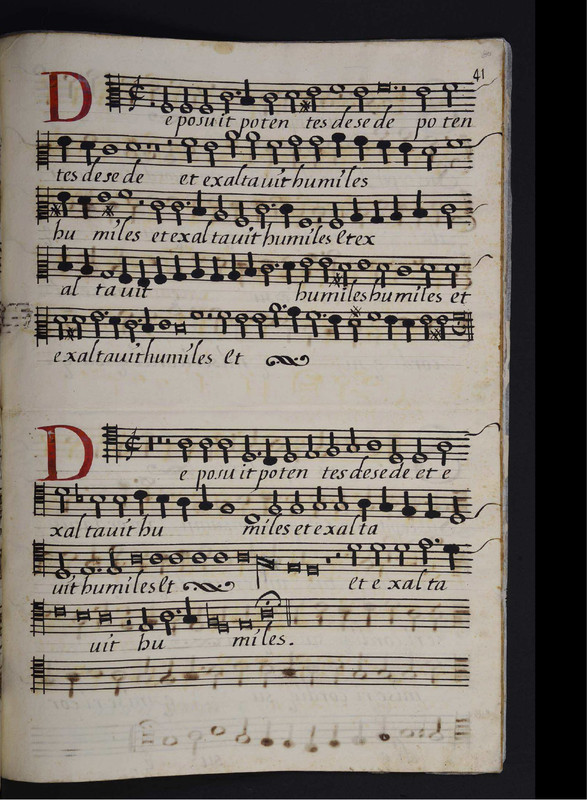 41
De posuit poten tes de se de po ten
tes de se de et exaltauit humiles
hu miles et exaltauit humiles et ex
al ta uit humiles humiles et
exaltauit humiles et
De posuit poten tes de se de et e
xaltauit hu miles et exalta
uit humiles et et e xal ta
uit hu miles.